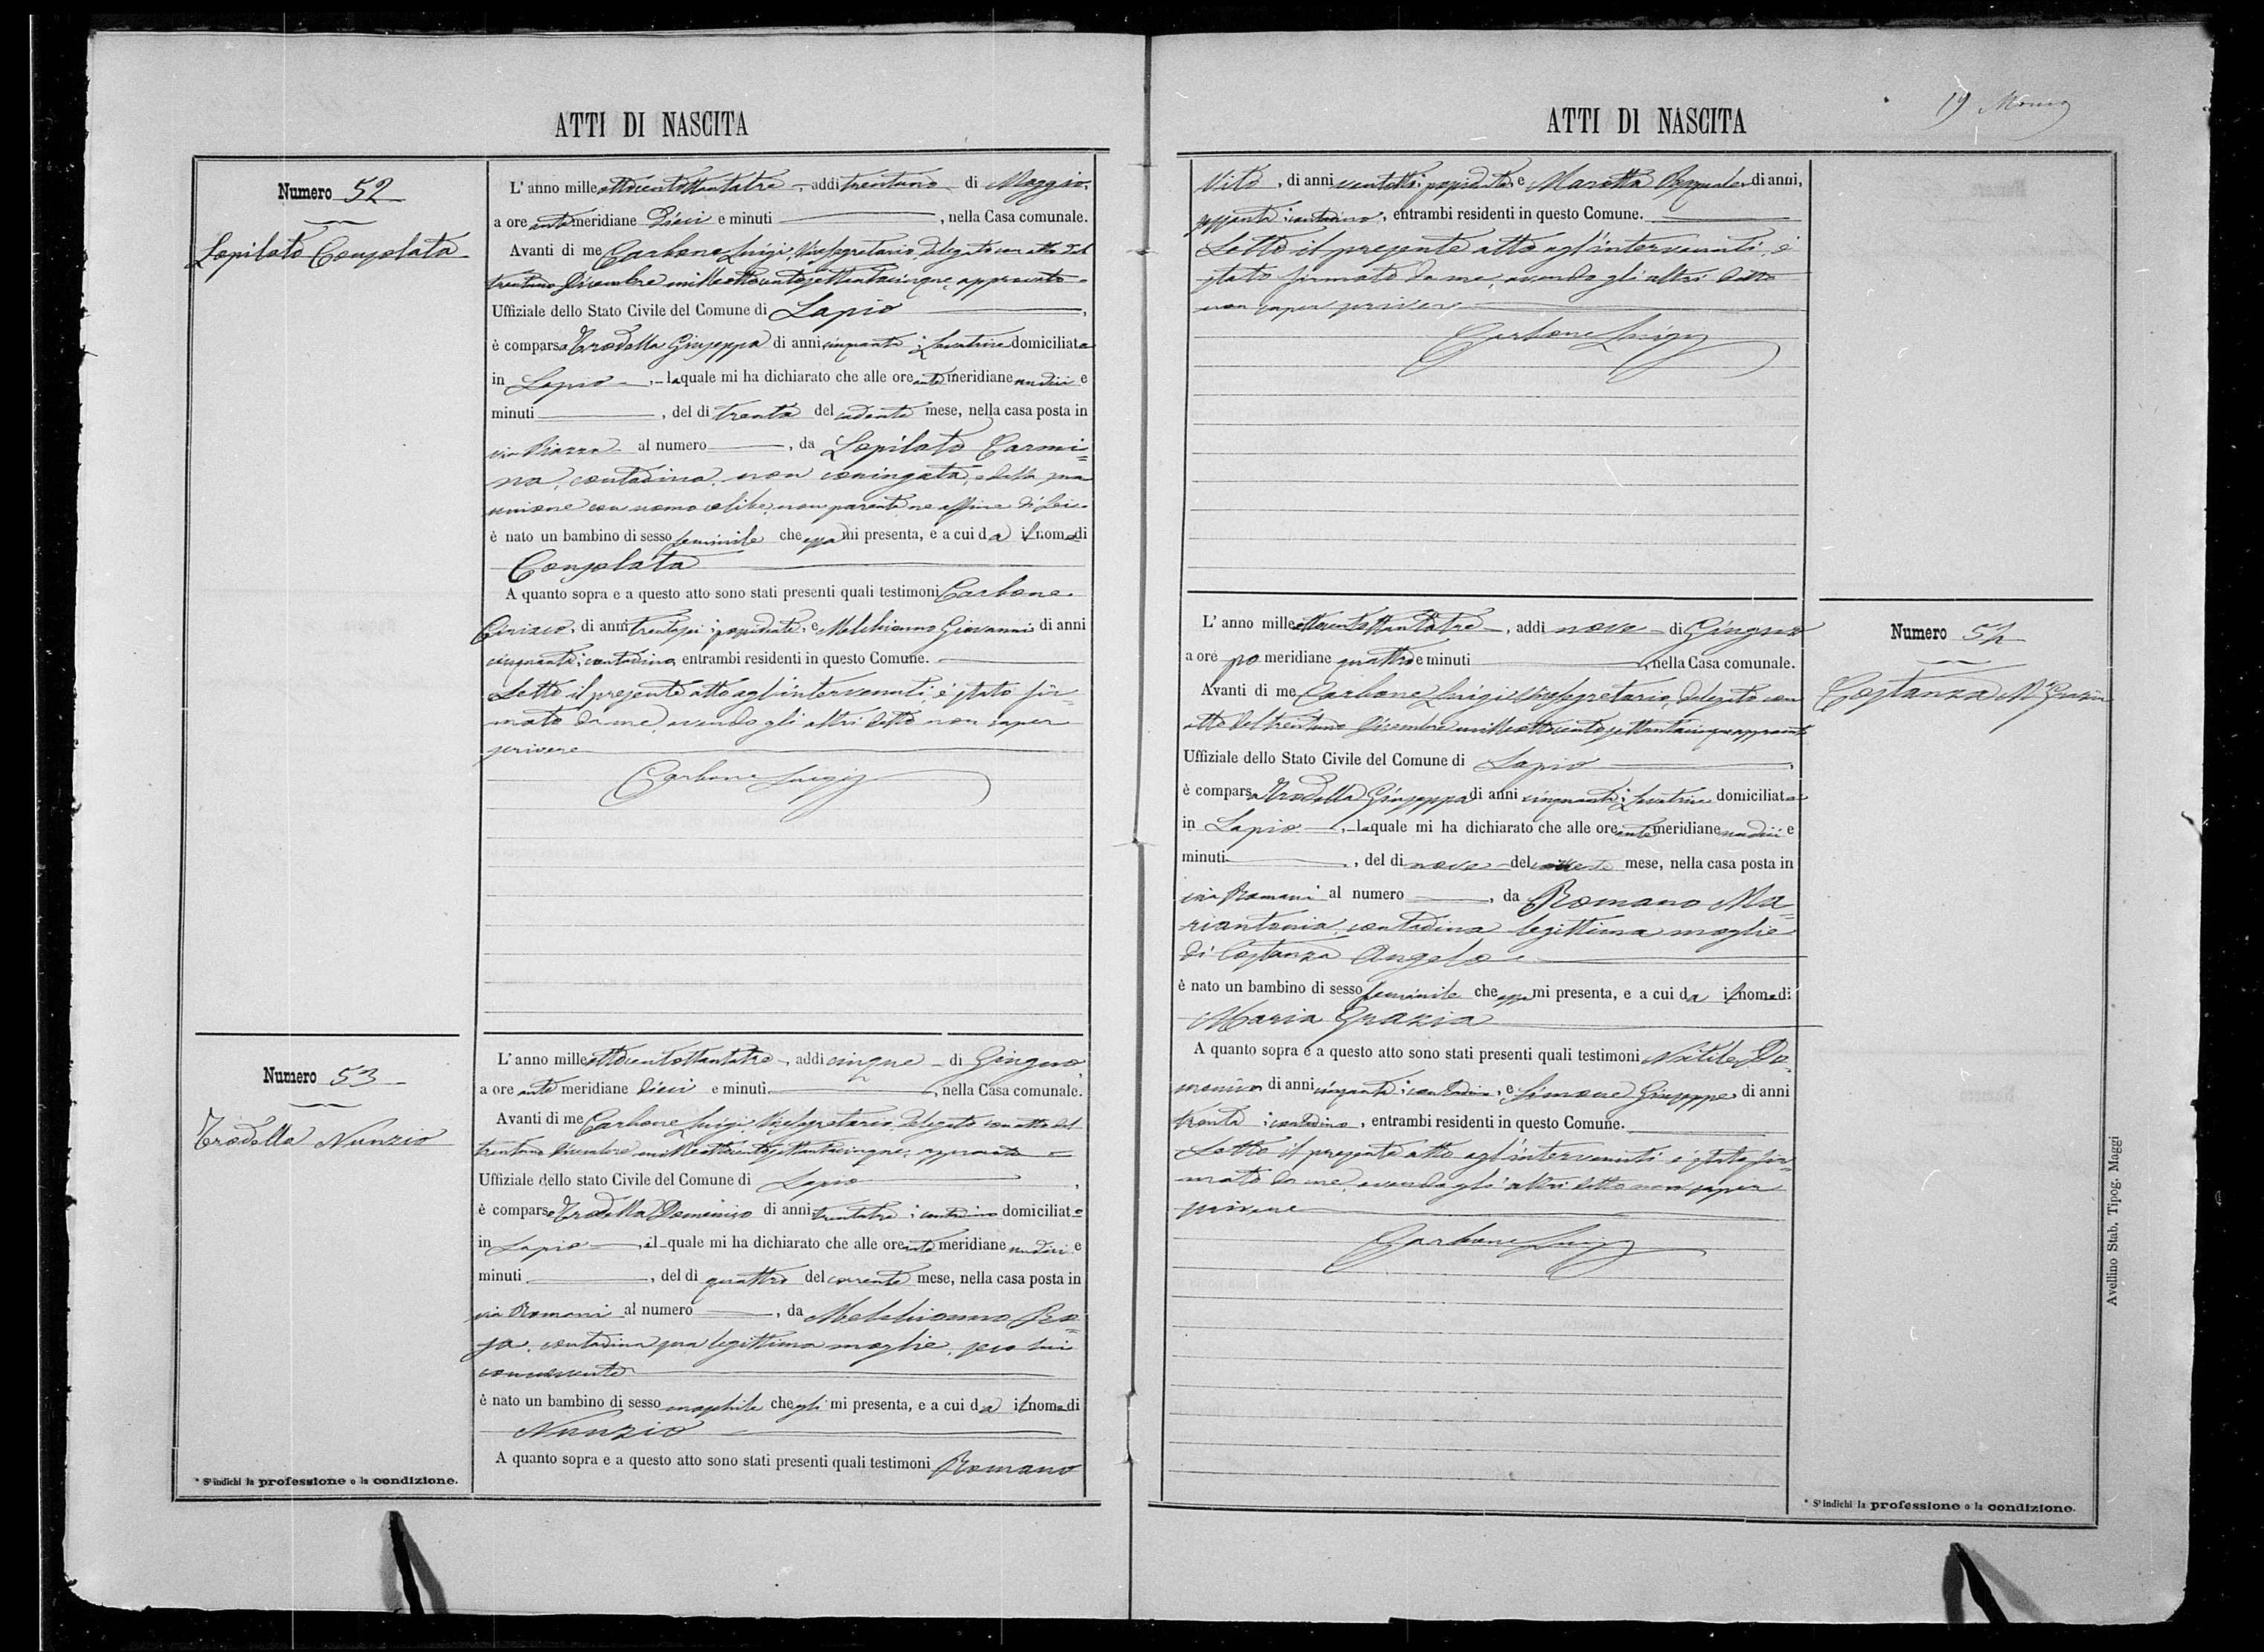 ATTI DI NASCITA
Numero 52
Lopilato Consolata
L' anno mille ottocentottantatre, addi trentuno di Maggio,
a ore ante meridiane dieci e minuti , nella Casa comunale.
Avanti di me Carbone Luigi, Vicesegretario, delegato con atto del
trentuno Dicembre milleottocentosettantacinque, approvato
Uffiziale dello Stato Civile del Comune di Lapio ,
è comparsa Trodella Giuseppa di anni cinquanta; Levatrice domiciliata
in Lapio , la quale mi ha dichiarato che alle ore ante meridiane undici e
minuti , del di trenta del cadente mese, nella casa posta in
via Piazza al numero , da Lopilato Carmi=
na, contadina, non coniugata, e dalla sua
unione con uomo celibe, non parente ne affine di Lei
è nato un bambino di sesso feminile che essa mi presenta, e a cui da il nome di
Consolata
A quanto sopra e a questo atto sono stati presenti quali testimoni Carbone
Ciriaco, di anni trentasei; possidente, e Melchionno Giovanni di anni
cinquanta; contadino, entrambi residenti in questo Comune.
Letto il presente atto agl'intervenuti, è stato fir=
mato da me, avendo gli altri detto non saper
scrivere
Carbone Luigi
Numero 53
Trodella Nunzio
L' anno mille ottocentottantatre, addi cinque di Giugno,
a ore ante meridiane dieci e minuti , nella Casa comunale.
Avanti di me Carbone Luigi, Vicesegretario, delegato con atto del
trentuno Dicembre milleottocentosettantacinque, approvato
Uffiziale dello stato Civile del Comune di Lapio ,
è comparso Trodella Domenico di anni trentatre; contadino domiciliato
in Lapio , il quale mi ha dichiarato che alle ore ante meridiane undici e
minuti , del di quattro del corrente mese, nella casa posta in
via Romani al numero , da Melchionno Ro=
sa, contadina sua legittima moglie, seco lui
convivente
è nato un bambino di sesso maschile che egli mi presenta, e a cui da il nome di
Nunzio
A quanto sopra e a questo atto sono stati presenti quali testimoni Romano
* S'indichi la professione o la condizione.
ATTI DI NASCITA
19
Vito, di anni ventotto; possidente, e Marotta di anni,
sessanta; contadino, entrambi residenti in questo Comune.
Letto il presente atto agl'intervenuti, è
stato firmato da me, avendo gli altri detto
non saper scrivere
Carbone Luigi
Numero 54
Costanza M.ª Grazia
L' anno mille ottocentottantatre, addi nove di Giugno
a ore po meridiane quattro e minuti , nella Casa comunale.
Avanti di me Carbone Luigi Vicesegretario, delegato con
atto del trentuno Dicembre milleottocentosettantacinque approvato
Uffiziale dello Stato Civile del Comune di Lapio ,
è comparsa Trodella Giuseppa di anni cinquanta; Levatrice domiciliata
in Lapio , la quale mi ha dichiarato che alle ore ante meridiane undici e
minuti , del di nove del corrente mese, nella casa posta in
via Romani al numero , da Romano Ma=
riantonia, contadina legittima moglie
di Costanza Angelo
è nato un bambino di sesso feminile che essa mi presenta, e a cui da il nome di
Maria Grazia
A quanto sopra e a questo atto sono stati presenti quali testimoni Do=
menico di anni cinquanta; contadino, e Simone Giuseppe di anni
trenta; contadino, entrambi residenti in questo Comune.
Letto il presente atto agl'intervenuti è stato fir=
mato da me, avendo gli altri detto non saper
scrivere
Carbone Luigi
* S'indichi la professione o la condizione.
Avellino Stab. Tipog. Maggi